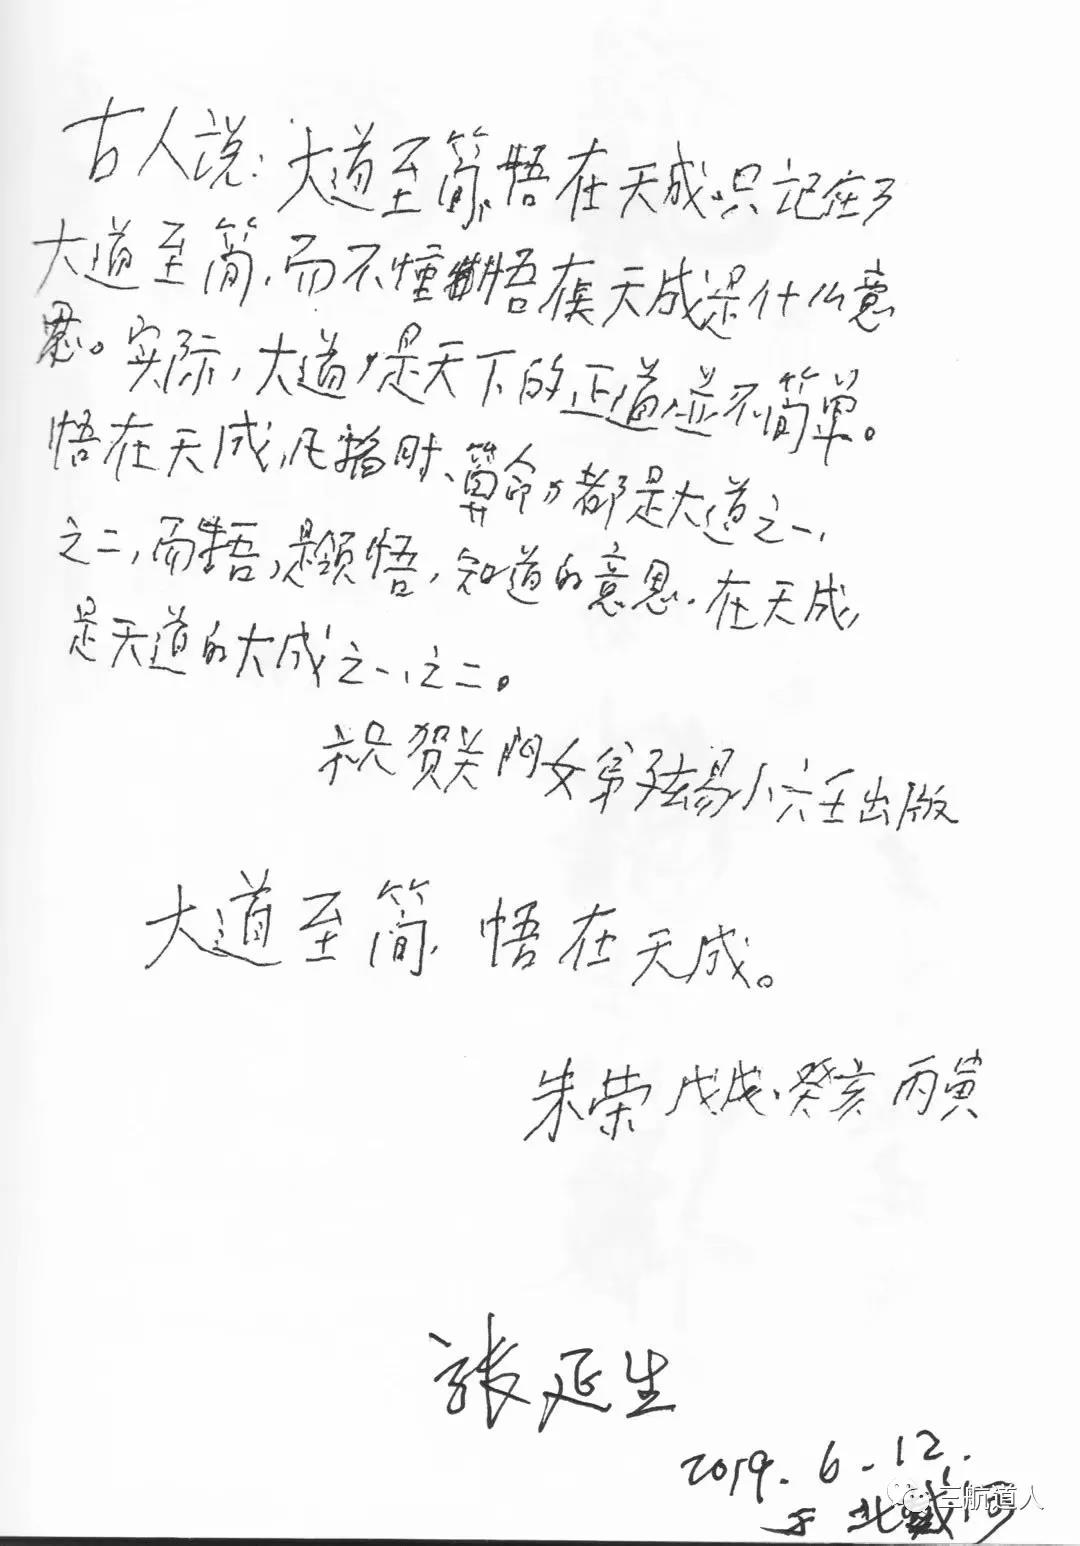 古人说：大道至简，悟在天成。只记住了
大道至简，而不懂悟在天成是什么意
思。实际，大道，是天下的正道，並不简单。
悟在天成，凡 时、算命，都是大道之一、
之二，而悟，是领悟，知道的意思。在天成，
是天道的大成之一、之二。
祝贺关门女弟子弦易小六壬出版
大道至简，悟在天成。
朱荣 戊戌、癸亥 丙寅
张延生
2019.6.12.
于北戴河
三航道人